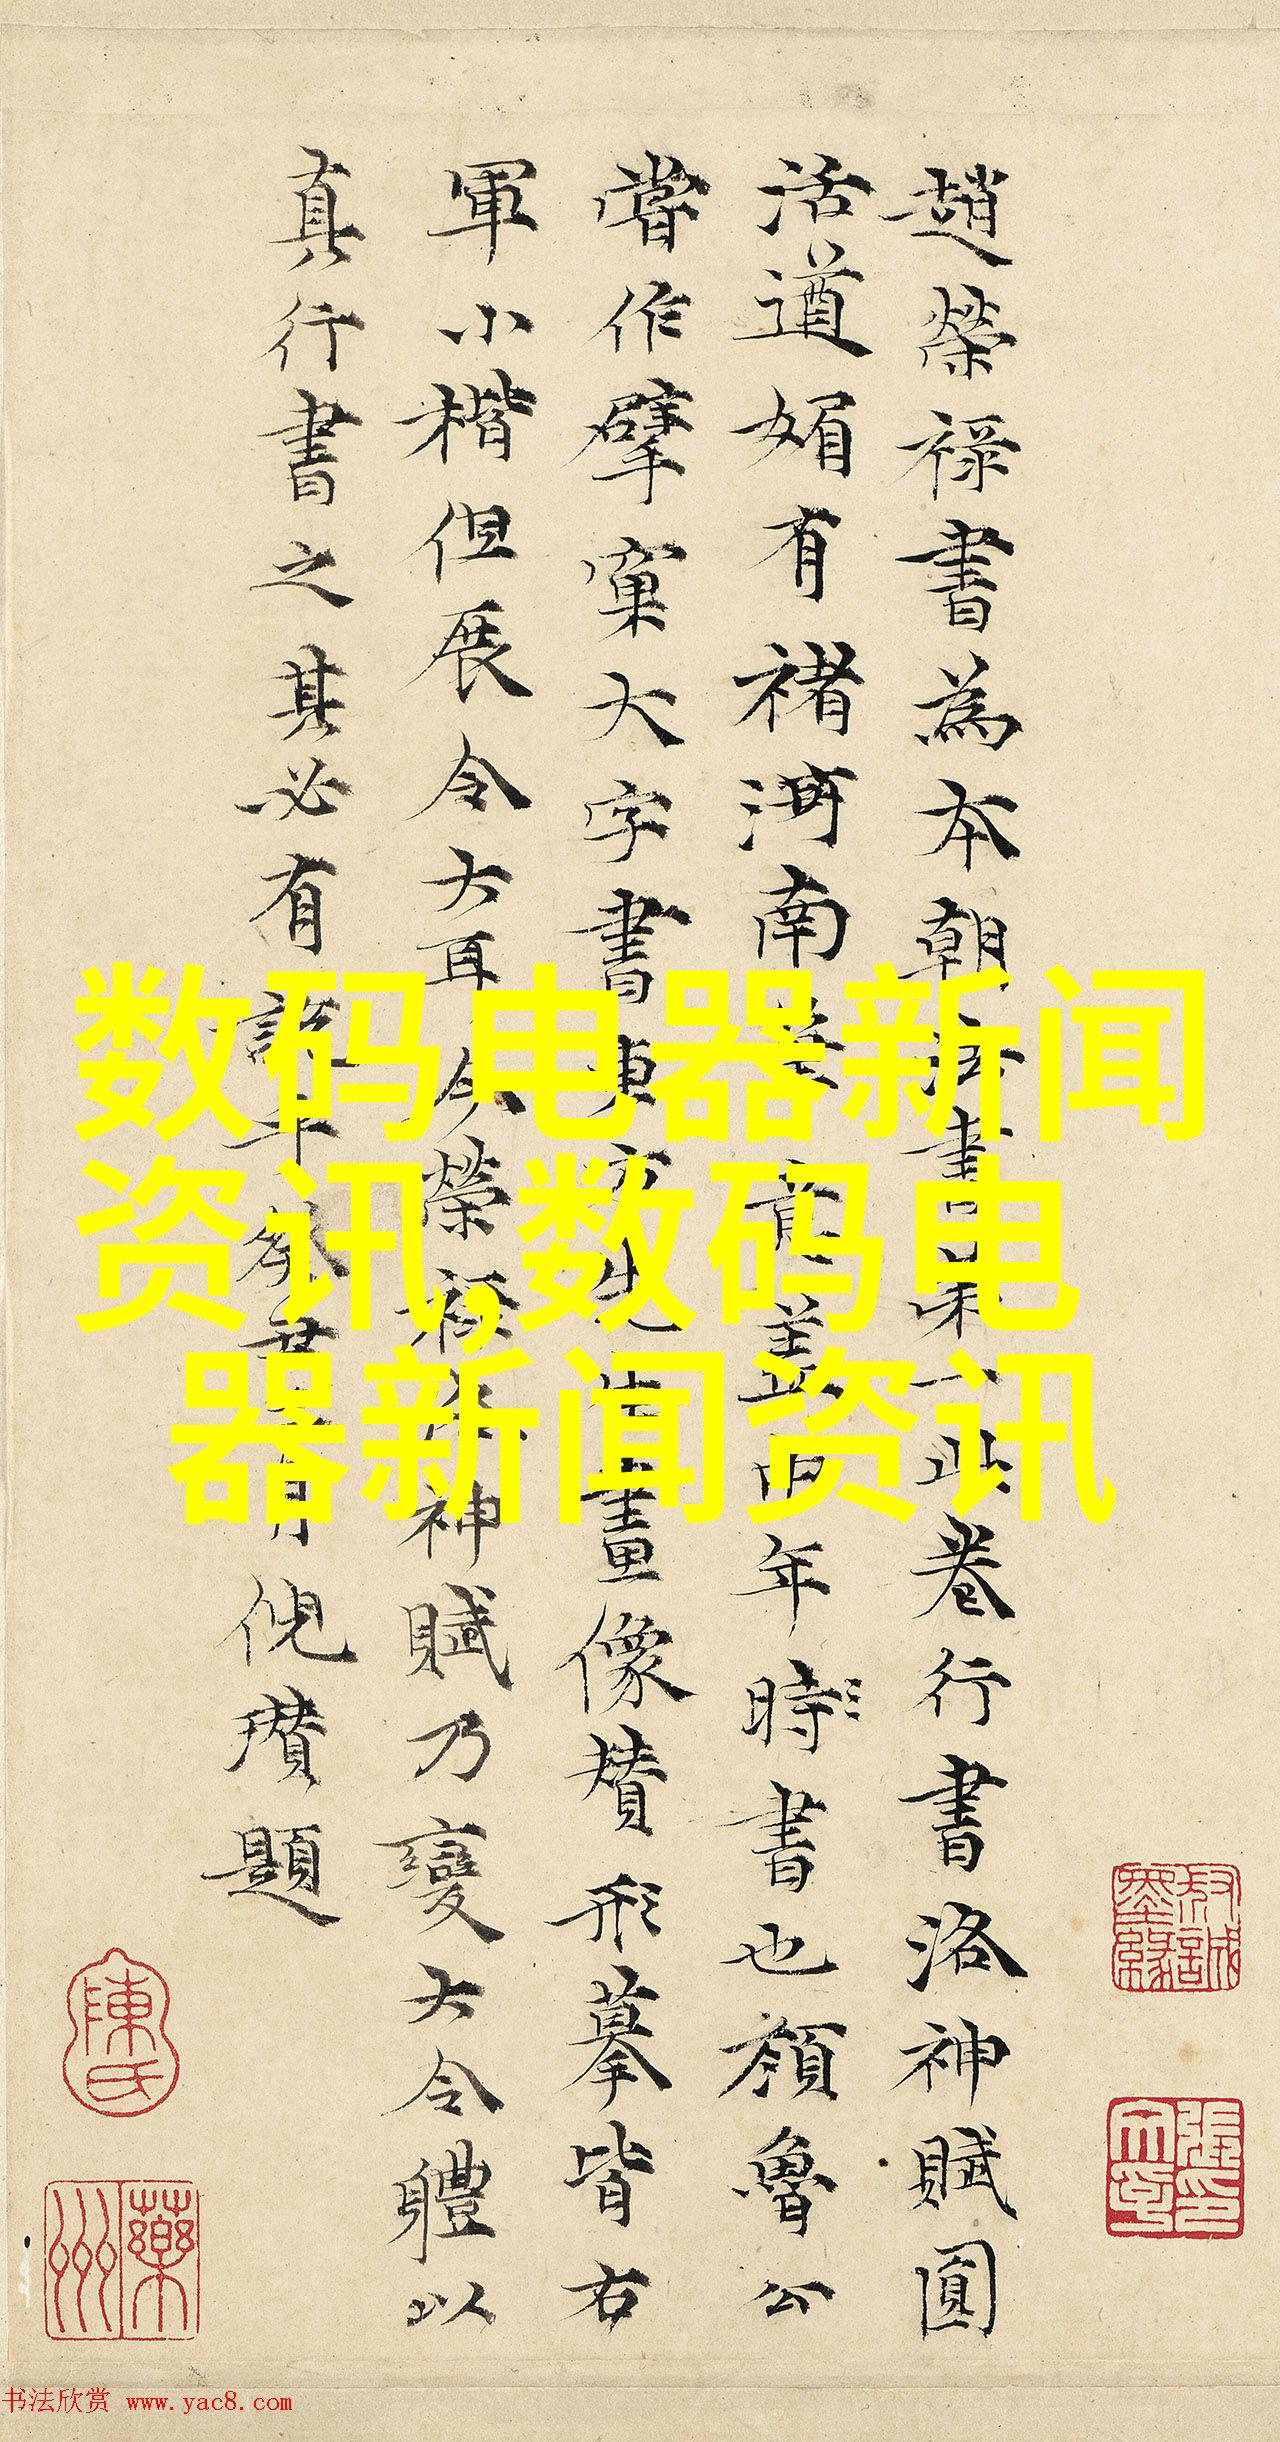 趙榮祿書為本朝法書第一此卷行書洛神賦圓
活遒媚有褚河南
年時書也顏魯公
嘗作擘窠大字書東方先生畫像贊形摹皆右
軍小楷但展令大耳今榮祿洛神賦乃變大令體以
真行書之其必有
倪瓚題
数码电器新闻
资讯,数码电
器新闻资讯
陳氏
书法欣赏 www.yac8.com